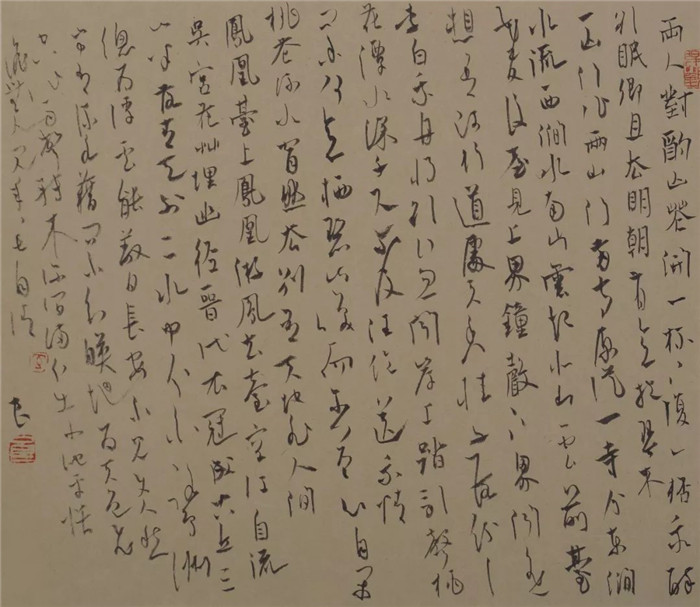 兩人對酌山花開一杯〃復一杯我醉
欲眠卿且去明朝有意抱琴來
一山門作兩山門兩寺原從一寺分東澗
水流西澗水南山雲起北山雲前臺
花發後臺見上界鐘聲下界聞遙
想吾師行道處天香桂子落紛〃
李白乘舟將欲行忽聞岸上踏歌聲桃
花潭水深千尺不及汪倫送我情
問余何意栖碧山笑而不答心自閑
桃花流水窅然去別有天地非人間
鳳凰臺上鳳凰遊鳳去臺空江自流
吳宮花草埋幽徑晉代衣冠成古丘三
山半落青天外二水中分白鷺洲
總為浮雲能蔽日長安不見使人愁